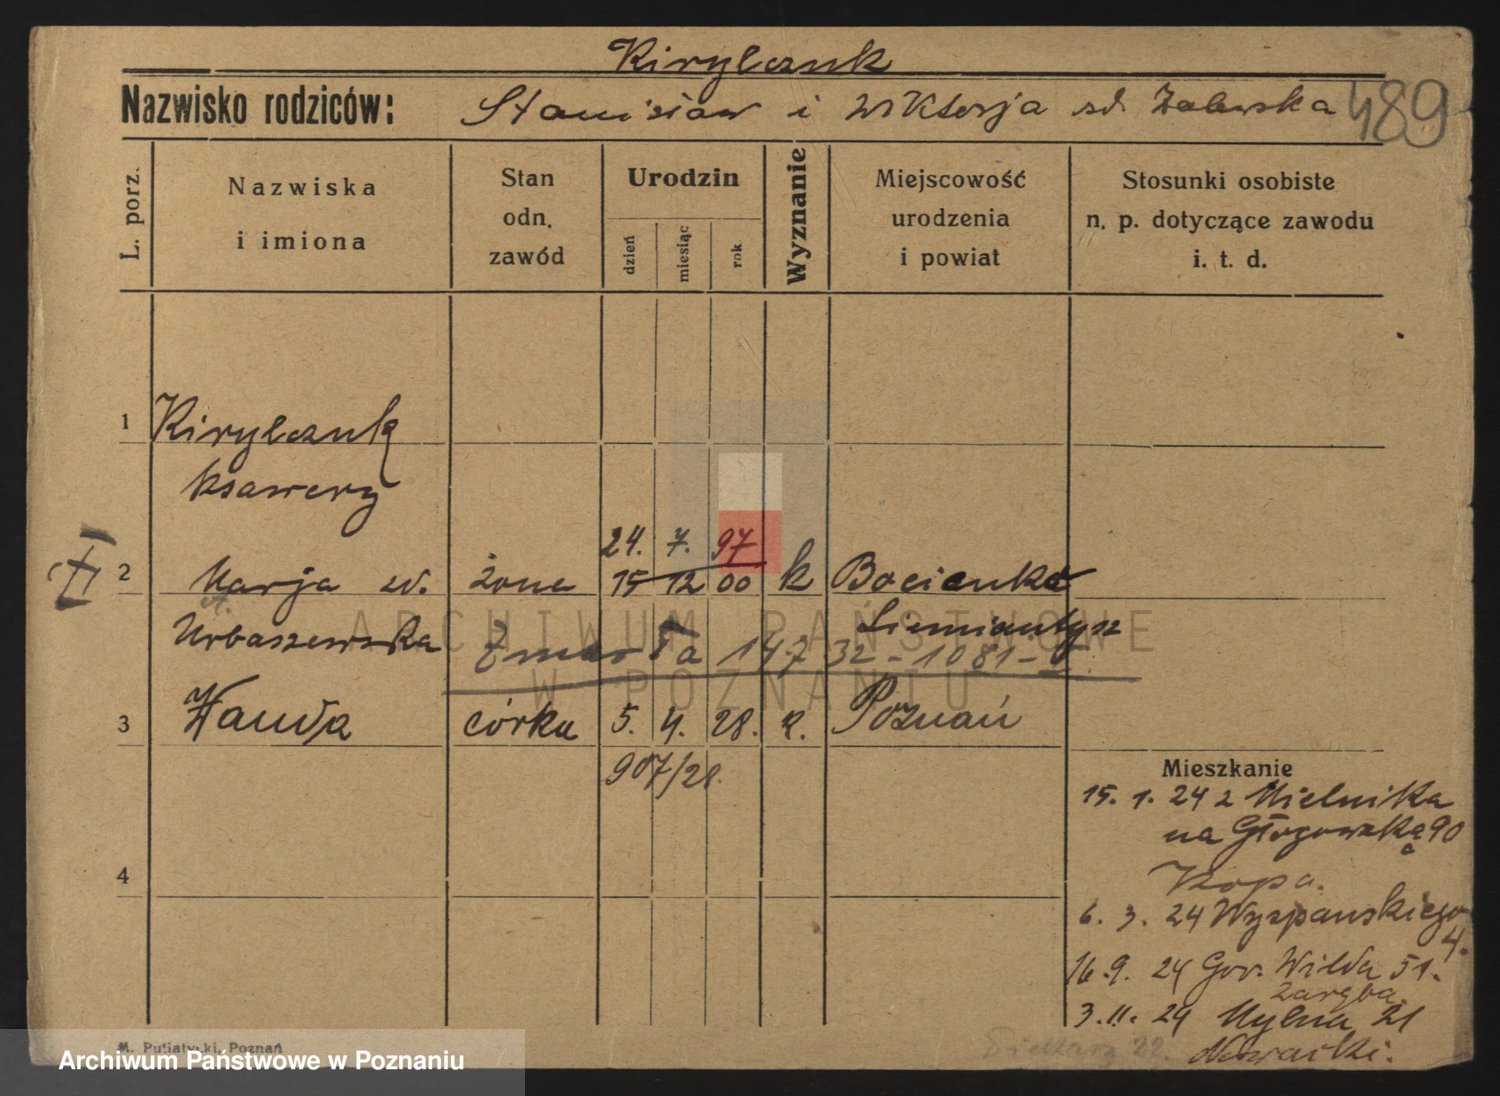 Kirylczuk
Nazwisko rodziców: Stanisław i Wiktorja zd. Zalewska 489
L. porz.
Nazwiska i imiona
Stan odn. zawód
Urodzin
dzień miesiąc rok
Wyznanie
Miejscowość urodzenia i powiat
Stosunki osobiste n. p. dotyczące zawodu i. t. d.
1 Kirylczuk
Ksawery
24. 7. 97
2 Marja zd. żona 15 12 00 k Bocienka
Urbaszewska Siemiatycz
Zmarła 147 32 - 1081 -
3 Wanda córka 5. 4. 28. k. Poznań
907/28.
Mieszkanie
15. 1. 24 z Mielnika
na Głogowską 90
Kopa.
6. 3. 24 Wyspańskiego
4.
4
16. 9. 24 Gór. Wilda 51.
Zaręba
3. 11. 24 Mylna 21
Nowacki.
M. Putiatycki, Poznań
ARCHIWUM PAŃSTWOWE
W POZNANIU
Archiwum Państwowe w Poznaniu